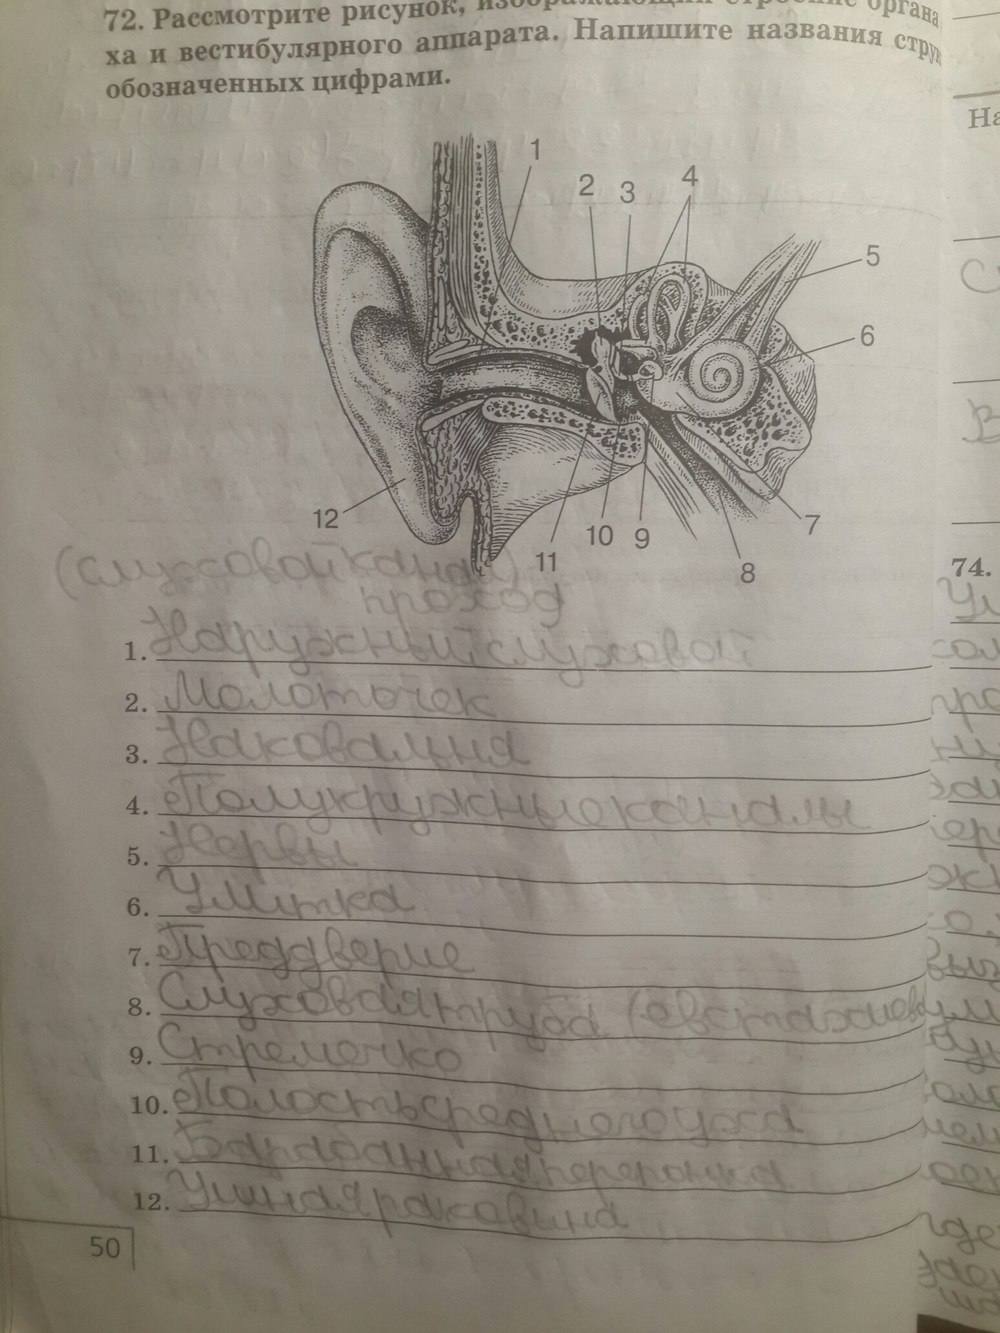 72. Рассмотрите рисунок, изображающий строение органа
ха и вестибулярного аппарата. Напишите названия струк
обозначенных цифрами.
На
1
2
3
4
5
6
7
8
9
10
11
12
(слуховой канал)
проход
1. Наружный слуховой
2. Молоточек
3. Наковальня
4. Полукружные каналы
5. Нервы
6. Улитка
7. Преддверие
8. Слуховая труба (евстахиева
9. Стремечко
10. Полость среднего уха
11. Барабанная перепонка
12. Ушная раковина
50
74.